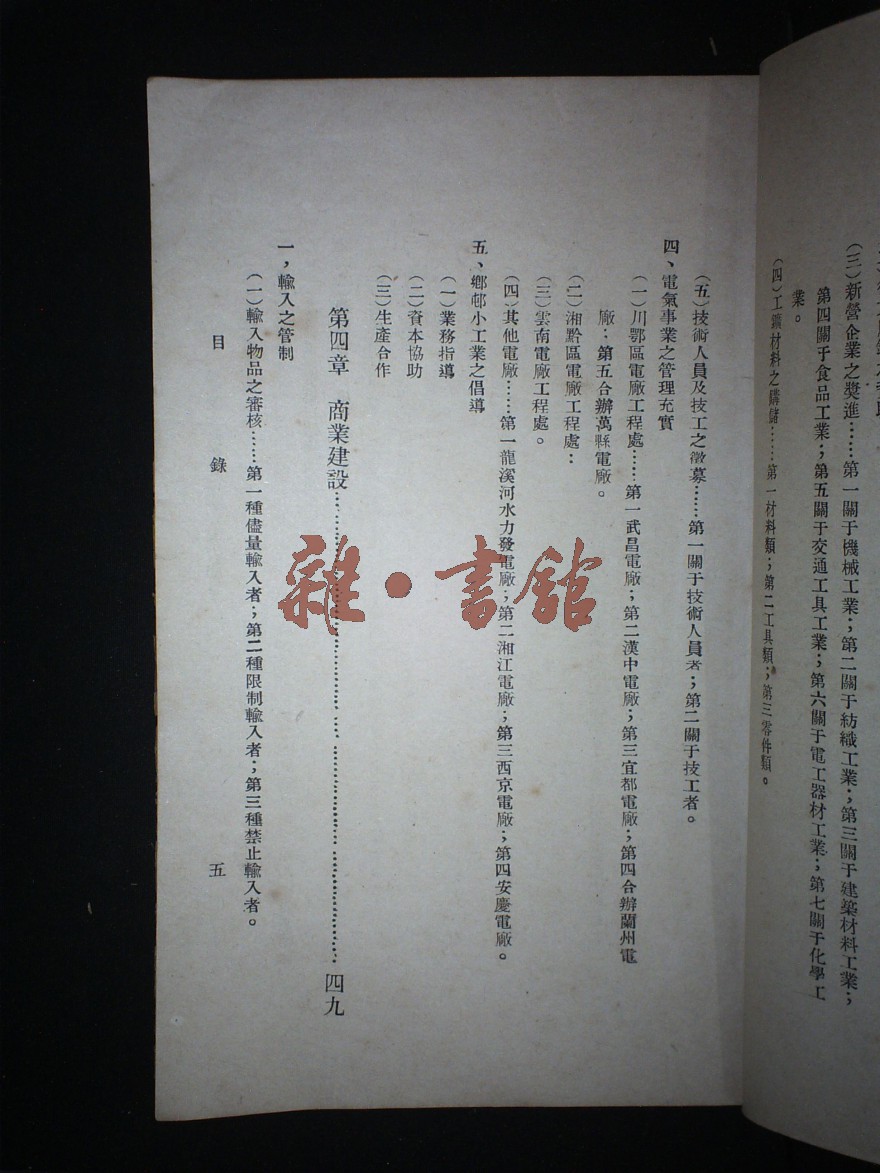 （三）新營企業之獎進……第一關于機械工業；第二關于紡織工業；第三關于建築材料工業；
第四關于食品工業；第五關于交通工具工業；第六關于電工器材工業；第七關于化學工
業。
（四）工鑛材料之購儲……第一材料類；第二工具類；第三零件類。
（五）技術人員及技工之徵募……第一關于技術人員者；第二關于技工者。
四、電氣事業之管理充實
（一）川鄂區電廠工程處……第一武昌電廠；第二漢中電廠；第三宜都電廠；第四合辦蘭州電
廠；第五合辦萬縣電廠。
（二）湘黔區電廠工程處：
（三）雲南電廠工程處。
（四）其他電廠……第一龍溪河水力發電廠；第二湘江電廠；第三西京電廠；第四安慶電廠。
五、鄉邨小工業之倡導
（一）業務指導
（二）資本協助
（三）生產合作
第四章　商業建設……四九
一，輸入之管制
（一）輸入物品之審核……第一種儘量輸入者；第二種限制輸入者；第三種禁止輸入者。
目　錄　五
雜·書館